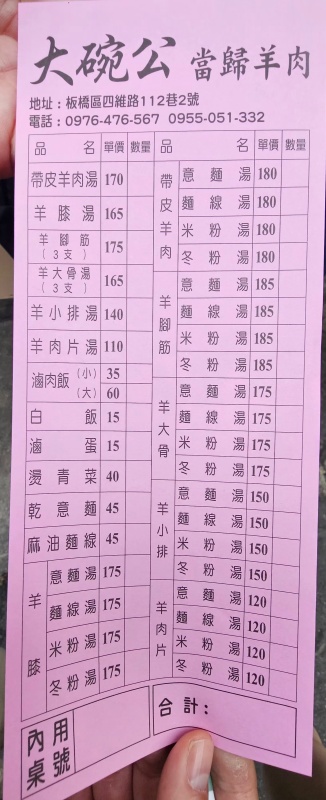 大碗公 當歸羊肉
地址：板橋區四維路112巷2號
電話：0976-476-567 0955-051-332
品名 單價 數量
帶皮羊肉湯 170
羊膝湯 165
羊腳筋（3支） 175
羊大骨湯（3支） 165
羊小排湯 140
羊肉片湯 110
滷肉飯（小） 35
（大） 60
白飯 15
滷蛋 15
燙青菜 40
乾意麵 45
麻油麵線 45
羊膝
意麵湯 175
麵線湯 175
米粉湯 175
冬粉湯 175
品名 單價 數量
帶皮羊肉
意麵湯 180
麵線湯 180
米粉湯 180
冬粉湯 180
羊腳筋
意麵湯 185
麵線湯 185
米粉湯 185
冬粉湯 185
羊大骨
意麵湯 175
麵線湯 175
米粉湯 175
冬粉湯 175
羊小排
意麵湯 150
麵線湯 150
米粉湯 150
冬粉湯 150
羊肉片
意麵湯 120
麵線湯 120
米粉湯 120
冬粉湯 120
內用桌號
合計：